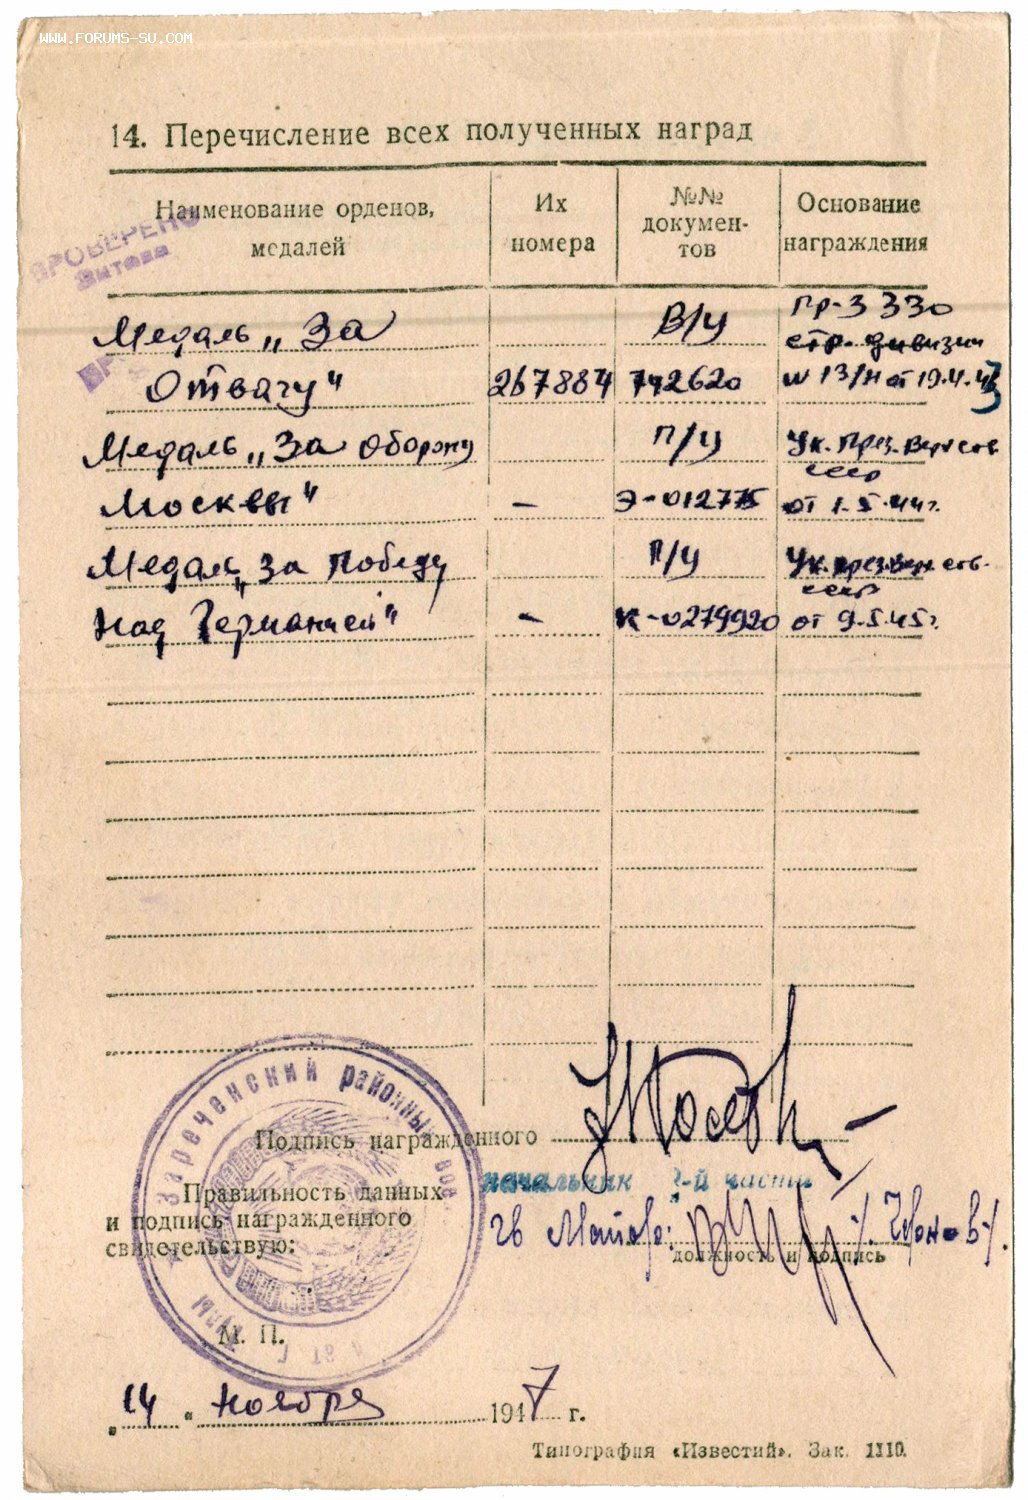 WWW.FORUMS-SU.COM
14. Перечисление всех полученных наград
Наименование орденов, медалей
Их номера
№№ докумен-
тов
Основание награждения
ПРОВЕРЕНО
Медаль „За
В/у
Пр-з 330
стр. дивизии
Отвагу"
267884
742620
№ 13/н от 19.4.43
Медаль „За оборону
П/у
Ук. През. Верх
ссср
Москвы"
—
Э-012775
от 1.5.44г.
Медаль „за победу
П/у
Ук. през. Верх.
ссср
над Германией"
—
К-0279920
от 9.5.45г.
Подпись награжденного
Правильность данных
и подпись награжденного
свидетельствую:
начальник 2-й части
гв Майор:
должность и подпись
Зареченский районный вое
Тулы
М. П.
„14" ноября 1947 г.
Типография «Известий». Зак. 1110.